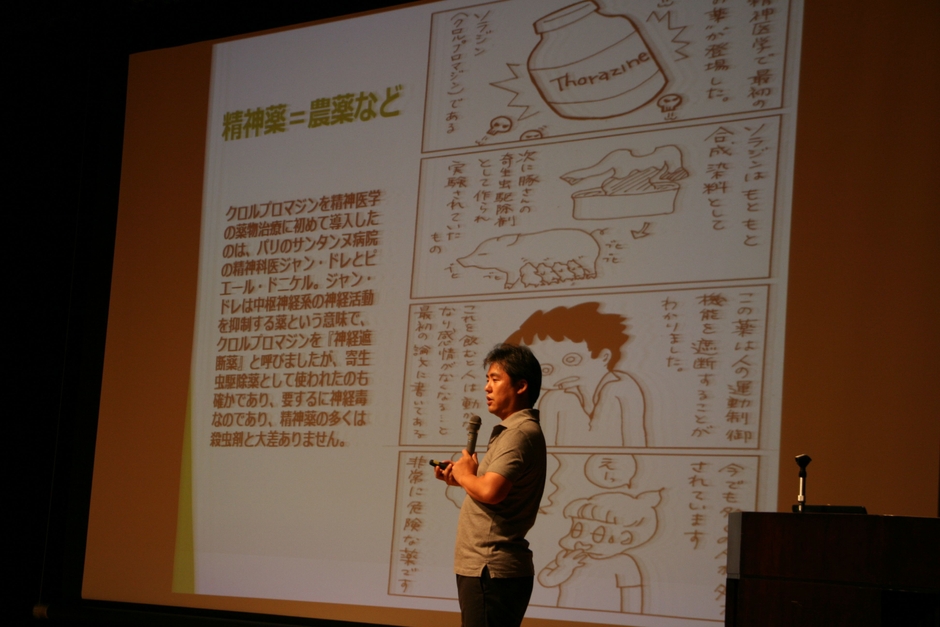 精神薬＝農薬など
クロルプロマジンを精神医学
の薬物治療に初めて導入した
のは、パリのサンタンヌ病院
の精神科医ジャン・ドレとピ
エール・ドニケル。ジャン・
ドレは中枢神経系の神経活動
を抑制する薬という意味で、
クロルプロマジンを『神経遮
断薬』と呼びましたが、寄生
虫駆除薬として使われたのも
確かであり、要するに神経毒
なのであり、精神薬の多くは
殺虫剤と大差ありません。
精神医学で最初の
の薬”が登場した。
Thorazine
ソラジン
(クロルプロマジン)である
ソラジンはもともと
合成染料として
次に豚さんの
寄生虫駆除剤
として作られ
実験されていた
もの
この薬は人の運動制御
機能を遮断することが
わかりました。
これを飲むと人は動
なり感情がなくなる…と
最初の論文に書いてある
今でも
されています
えーッ
非常に危険な薬です